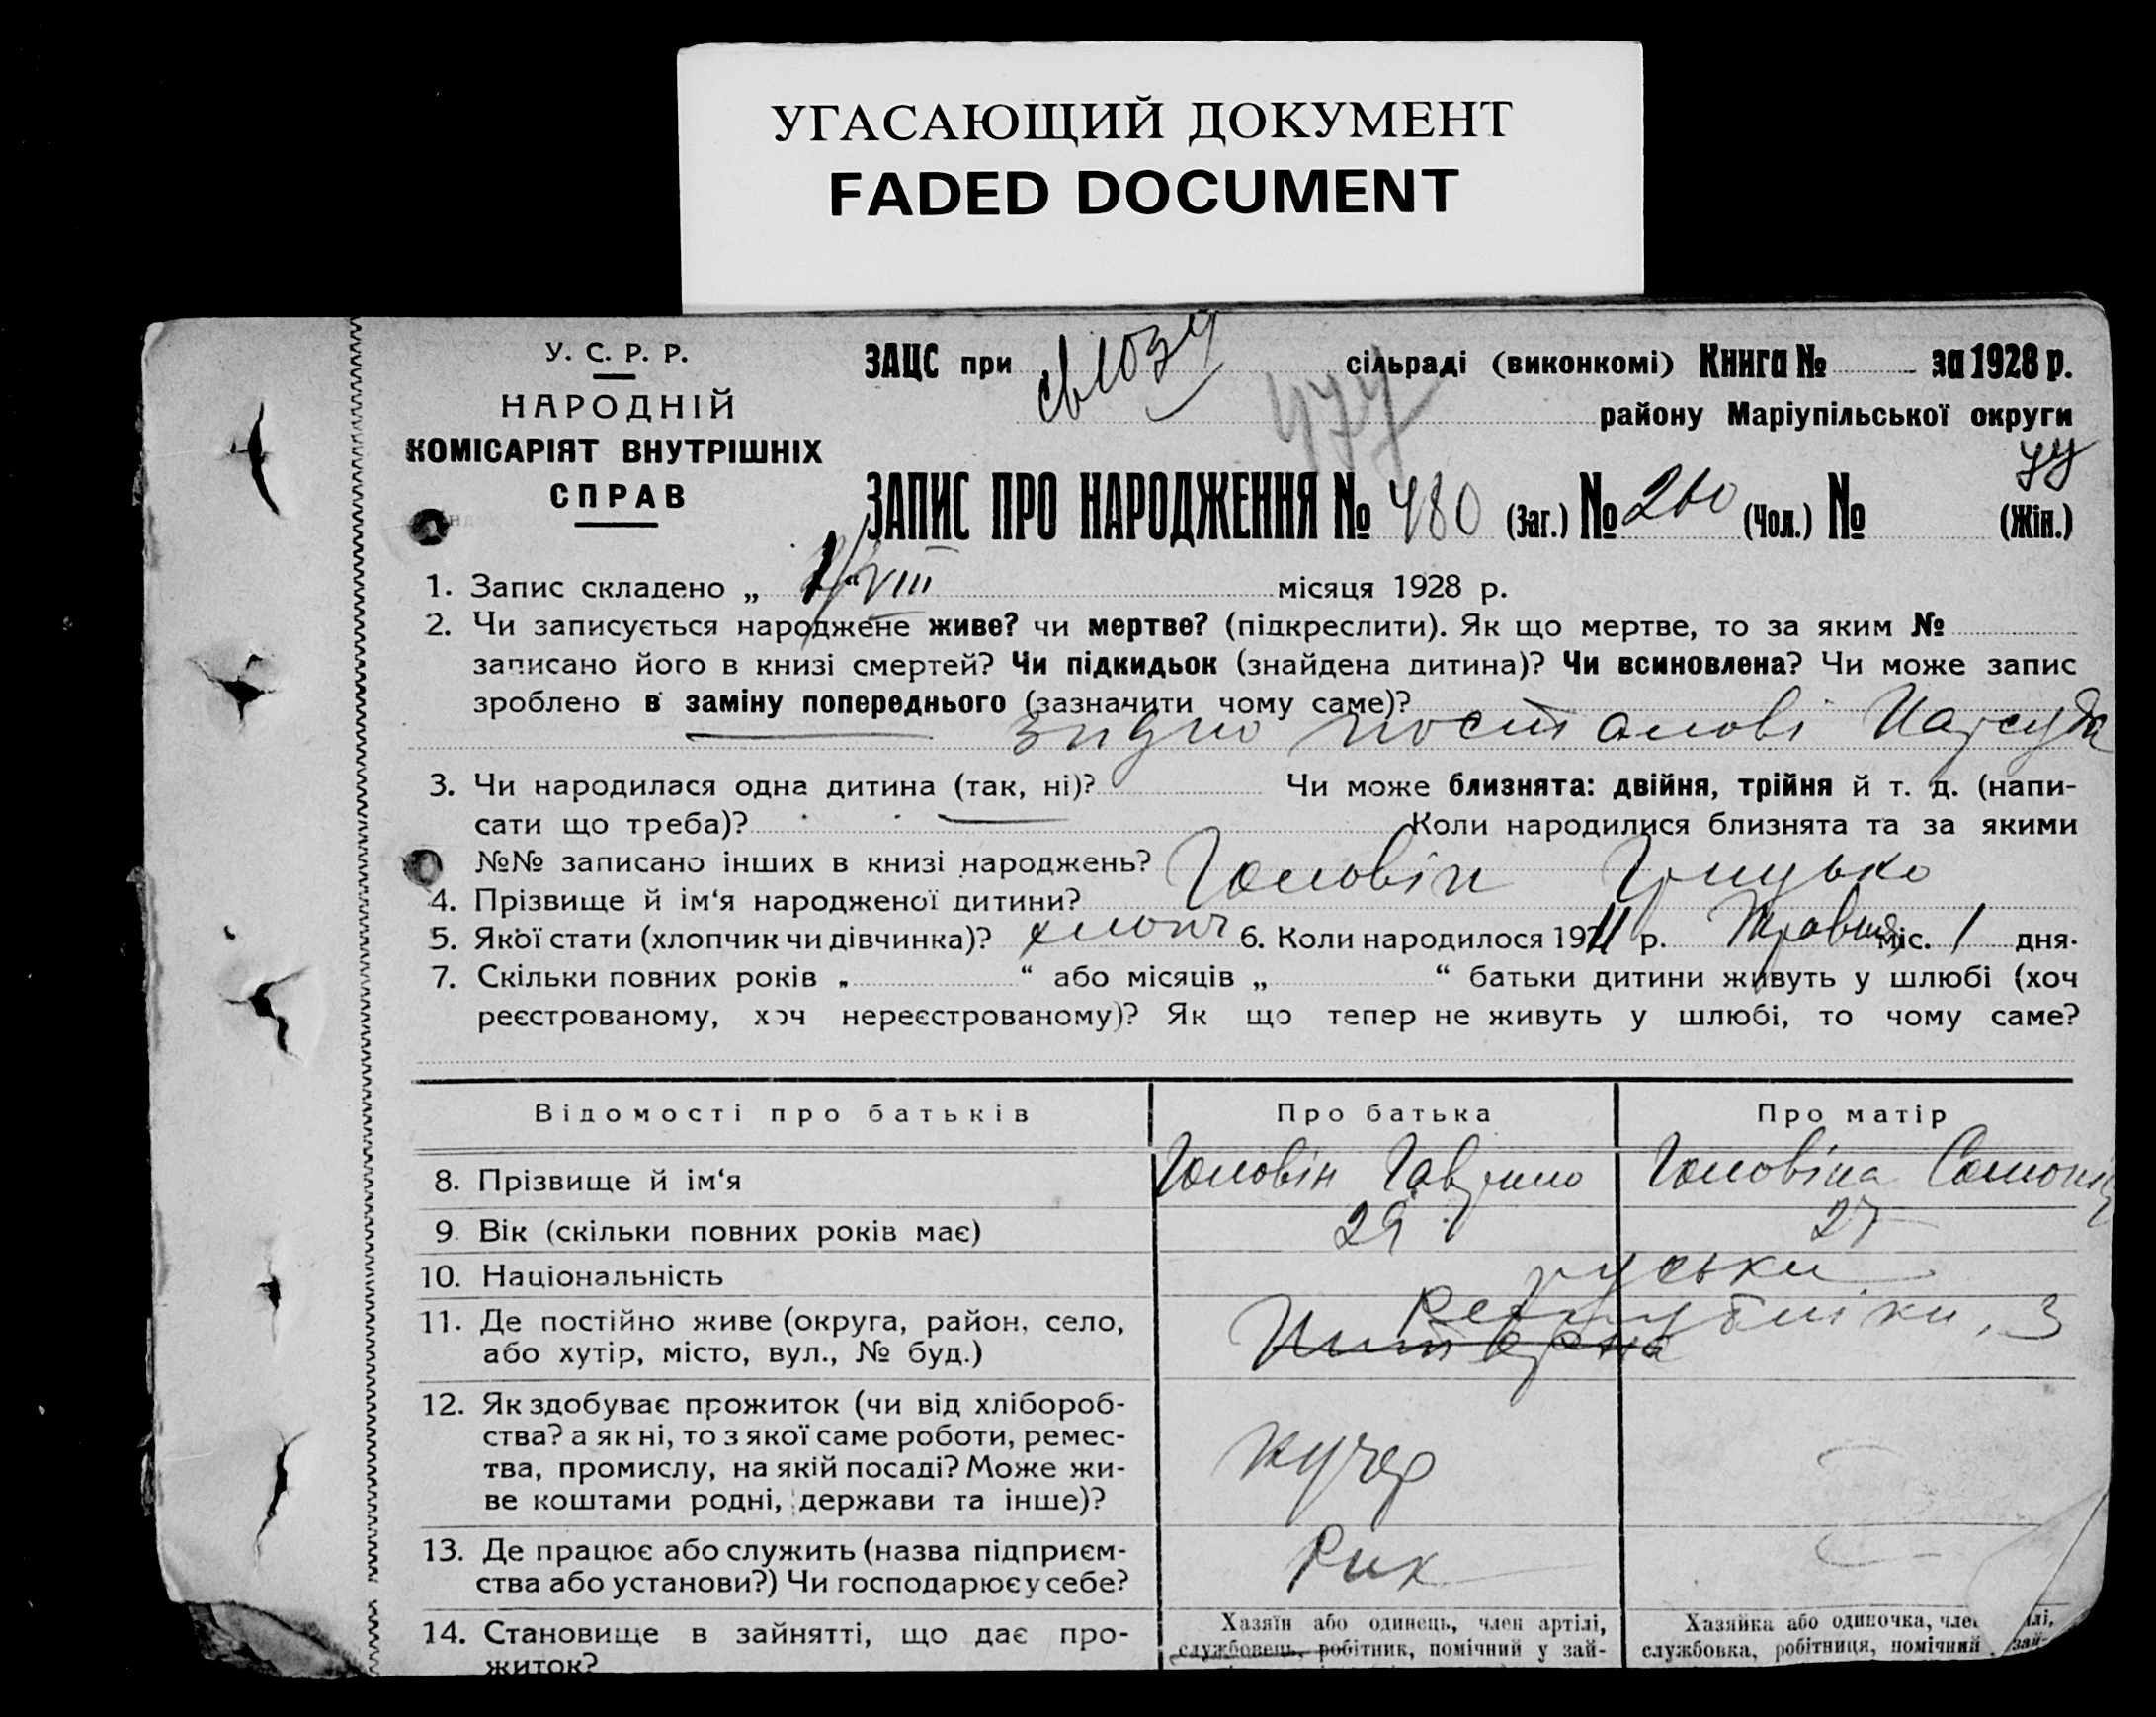 УГАСАЮЩИЙ ДОКУМЕНТ
FADED DOCUMENT
У. С. Р. Р.
НАРОДНІЙ
КОМІСАРІЯТ ВНУТРІШНІХ
СПРАВ
ЗАЦС при сільраді (виконкомі) Книга № за 1928 р.
477
району Маріупільської округи
ЗАПИС ПРО НАРОДЖЕННЯ № 480 (Заг.) № 260 (Чол.) № (Жін.)
1. Запис складено „ /VIII “ місяця 1928 р.
2. Чи записується народжене живе? чи мертве? (підкреслити). Як що мертве, то за яким №
записано його в книзі смертей? Чи підкидьок (знайдена дитина)? Чи всиновлена? Чи може запис
зроблено в заміну попереднього (зазначити чому саме)?
згидно постанові Нарсуда
3. Чи народилася одна дитина (так, ні)? Чи може близнята: двійня, трійня й т. д. (напи-
сати що треба)? Коли народилися близнята та за якими
№№ записано інших в книзі народжень?
4. Прізвище й ім‘я народженої дитини? Головін Грицько
5. Якої стати (хлопчик чи дівчинка)? хлопч 6. Коли народилося 19 р. Травня міс. 1 дня.
7. Скільки повних років „ “ або місяців „ “ батьки дитини живуть у шлюбі (хоч
реєстрованому, хоч нереєстрованому)? Як що тепер не живуть у шлюбі, то чому саме?
Відомості про батьків Про батька Про матір
8. Прізвище й ім‘я Головін Гаврило Головіна
9. Вік (скільки повних років має) 29 27
10. Національність руськи
11. Де постійно живе (округа, район, село, Республіки, 3
або хутір, місто, вул., № буд.)
12. Як здобуває прожиток (чи від хлібороб-
ства? а як ні, то з якої саме роботи, ремес-
тва, промислу, на якій посаді? Може жи-
ве коштами родні, держави та інше)? кучер
13. Де працює або служить (назва підприєм-
ства або установи?) Чи господарює у себе? Рик
14. Становище в зайнятті, що дає про-
житок?
Хазяїн або одинець, член артілі,
службовець, робітник, помічний у зай-
Хазяйка або одиночка, член
службовка, робітниця, помічний зай-